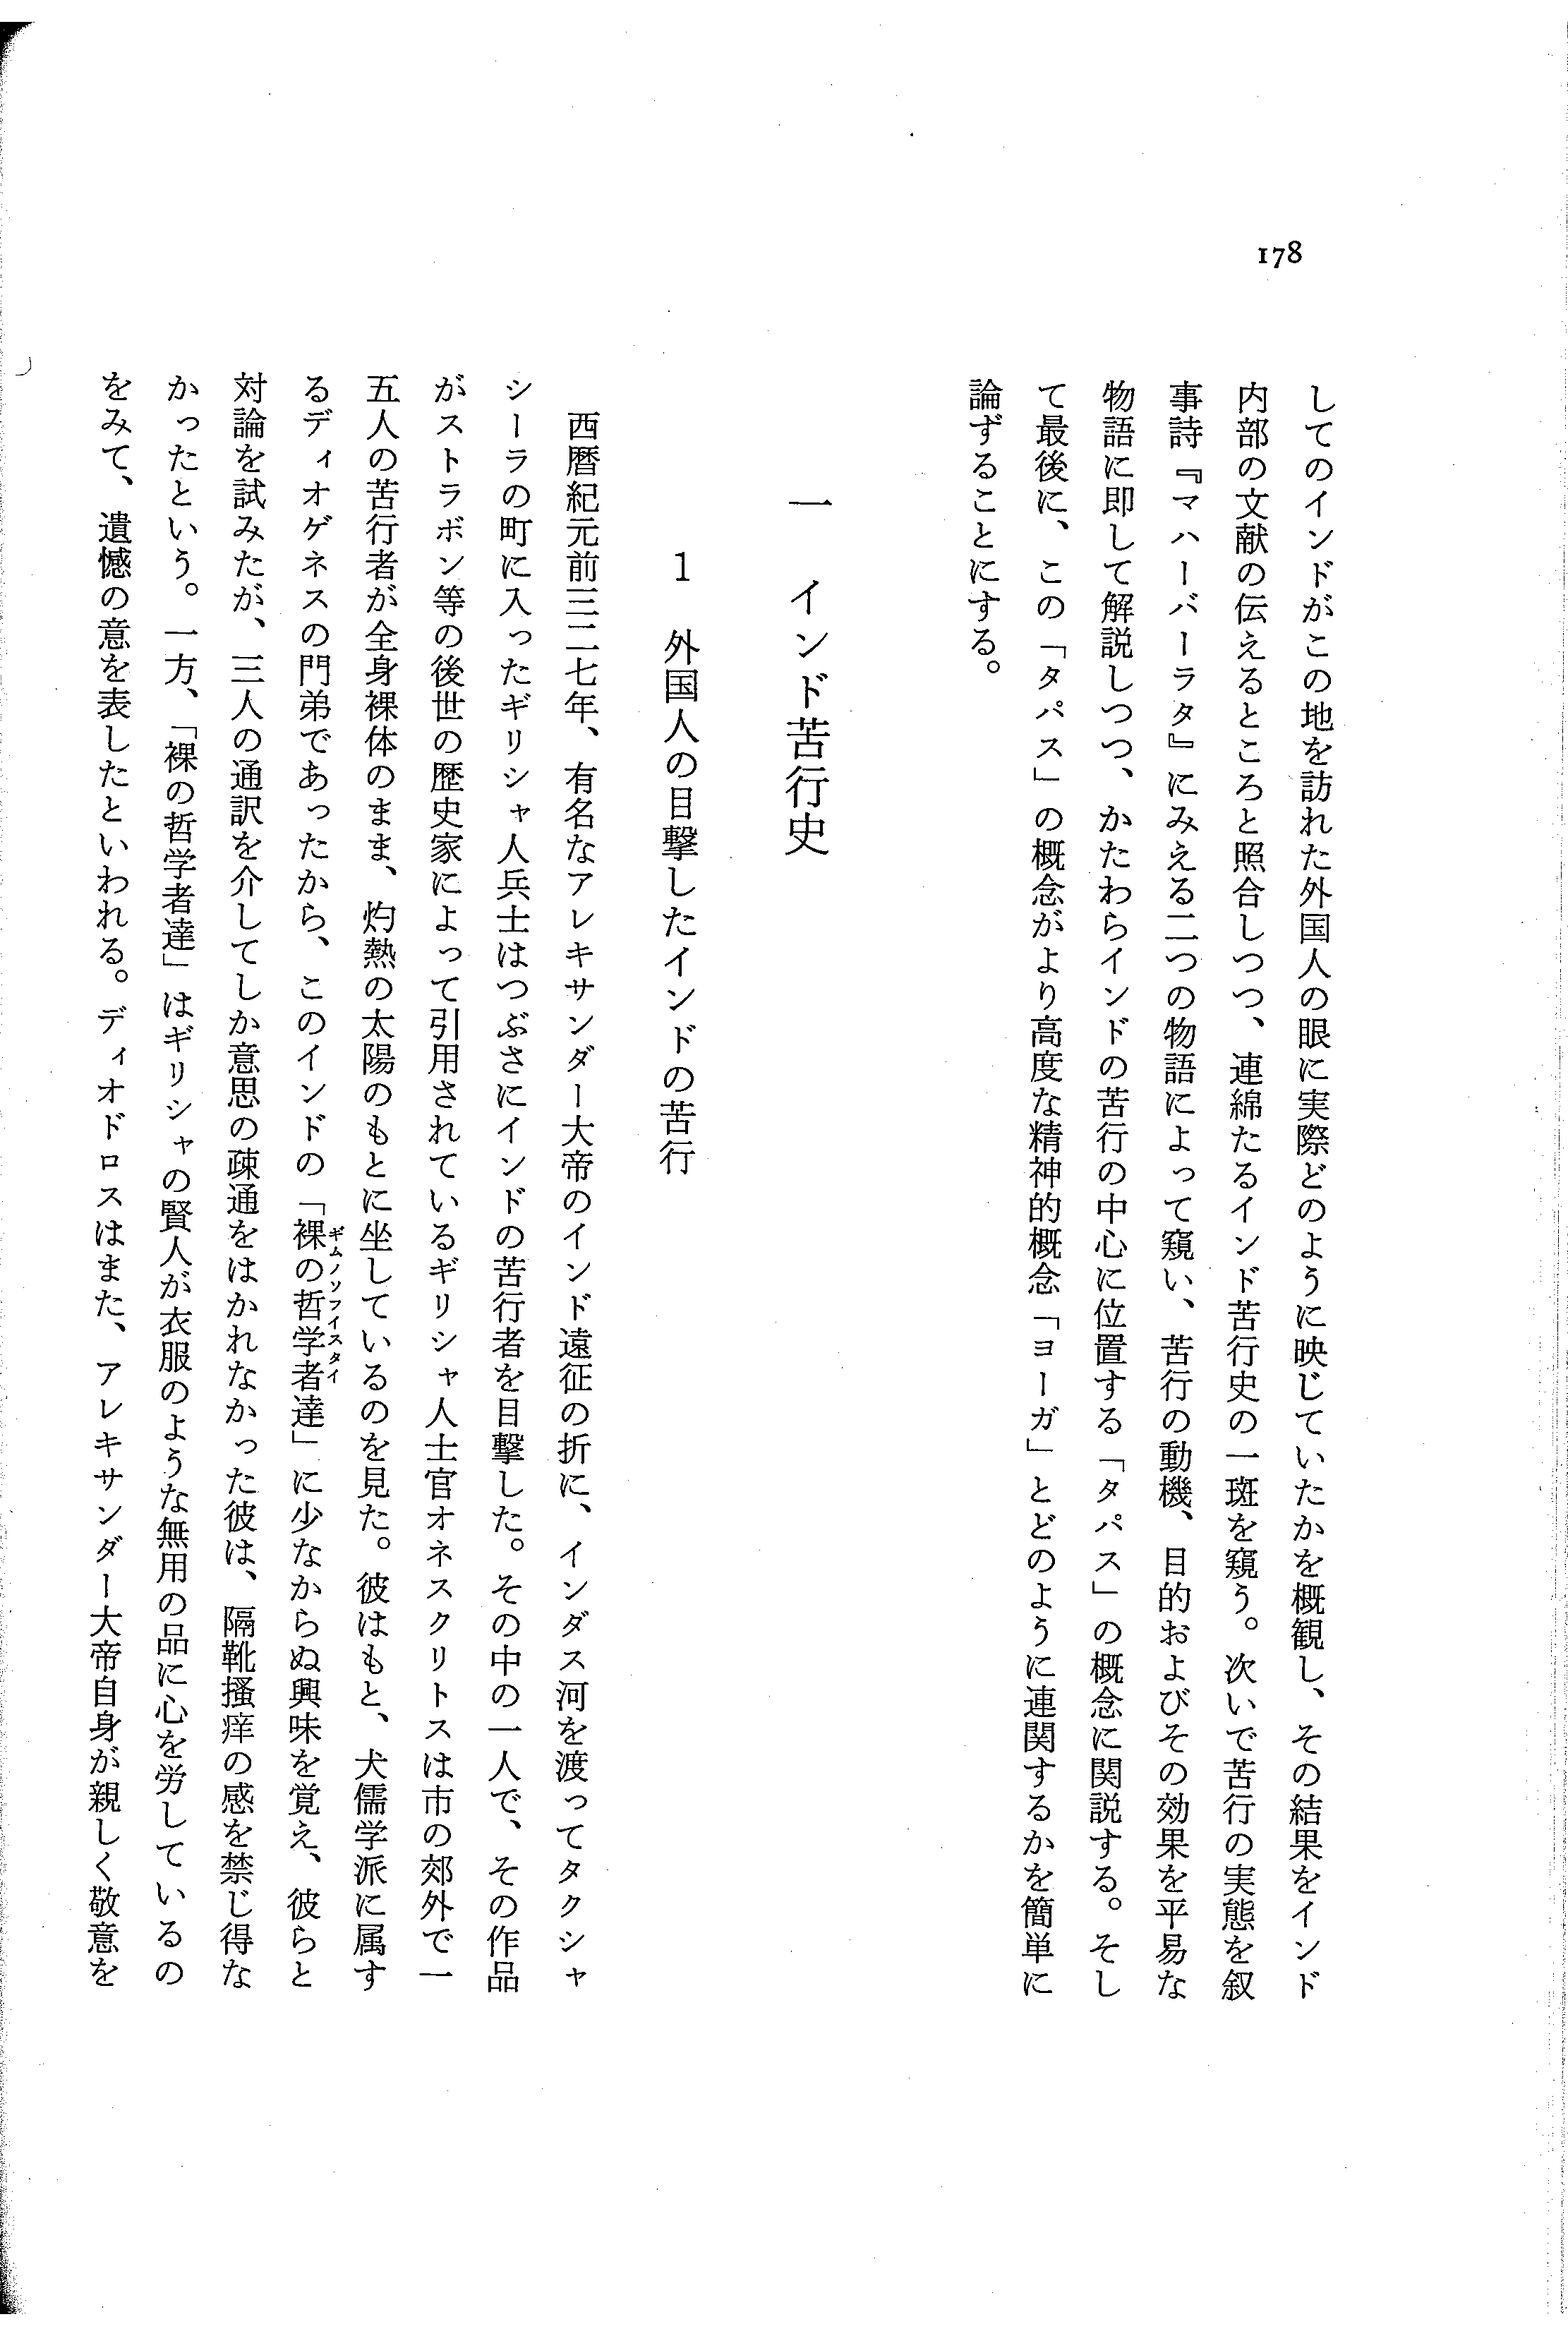 178
してのインドがこの地を訪れた外国人の眼に実際どのように映じていたかを概観し、その結果をインド
内部の文献の伝えるところと照合しつつ、連綿たるインド苦行史の一斑を窺う。次いで苦行の実態を叙
事詩『マハーバーラタ』にみえる二つの物語によって窺い、苦行の動機、目的およびその効果を平易な
物語に即して解説しつつ、かたわらインドの苦行の中心に位置する「タパス」の概念に関説する。そし
て最後に、この「タパス」の概念がより高度な精神的概念「ヨーガ」とどのように連関するかを簡単に
論ずることにする。
一 インド苦行史
1 外国人の目撃したインドの苦行
西暦紀元前三二七年、有名なアレキサンダー大帝のインド遠征の折に、インダス河を渡ってタクシャ
シーラの町に入ったギリシャ人兵士はつぶさにインドの苦行者を目撃した。その中の一人で、その作品
がストラボン等の後世の歴史家によって引用されているギリシャ人士官オネスクリトスは市の郊外で一
五人の苦行者が全身裸体のまま、灼熱の太陽のもとに坐しているのを見た。彼はもと、犬儒学派に属す
るディオゲネスの門弟であったから、このインドの「裸の哲学者達」に少なからぬ興味を覚え、彼らと
ギムノソフイスタイ
対論を試みたが、三人の通訳を介してしか意思の疎通をはかれなかった彼は、隔靴搔痒の感を禁じ得な
かったという。一方、「裸の哲学者達」はギリシャの賢人が衣服のような無用の品に心を労しているの
をみて、遺憾の意を表したといわれる。ディオドロスはまた、アレキサンダー大帝自身が親しく敬意を